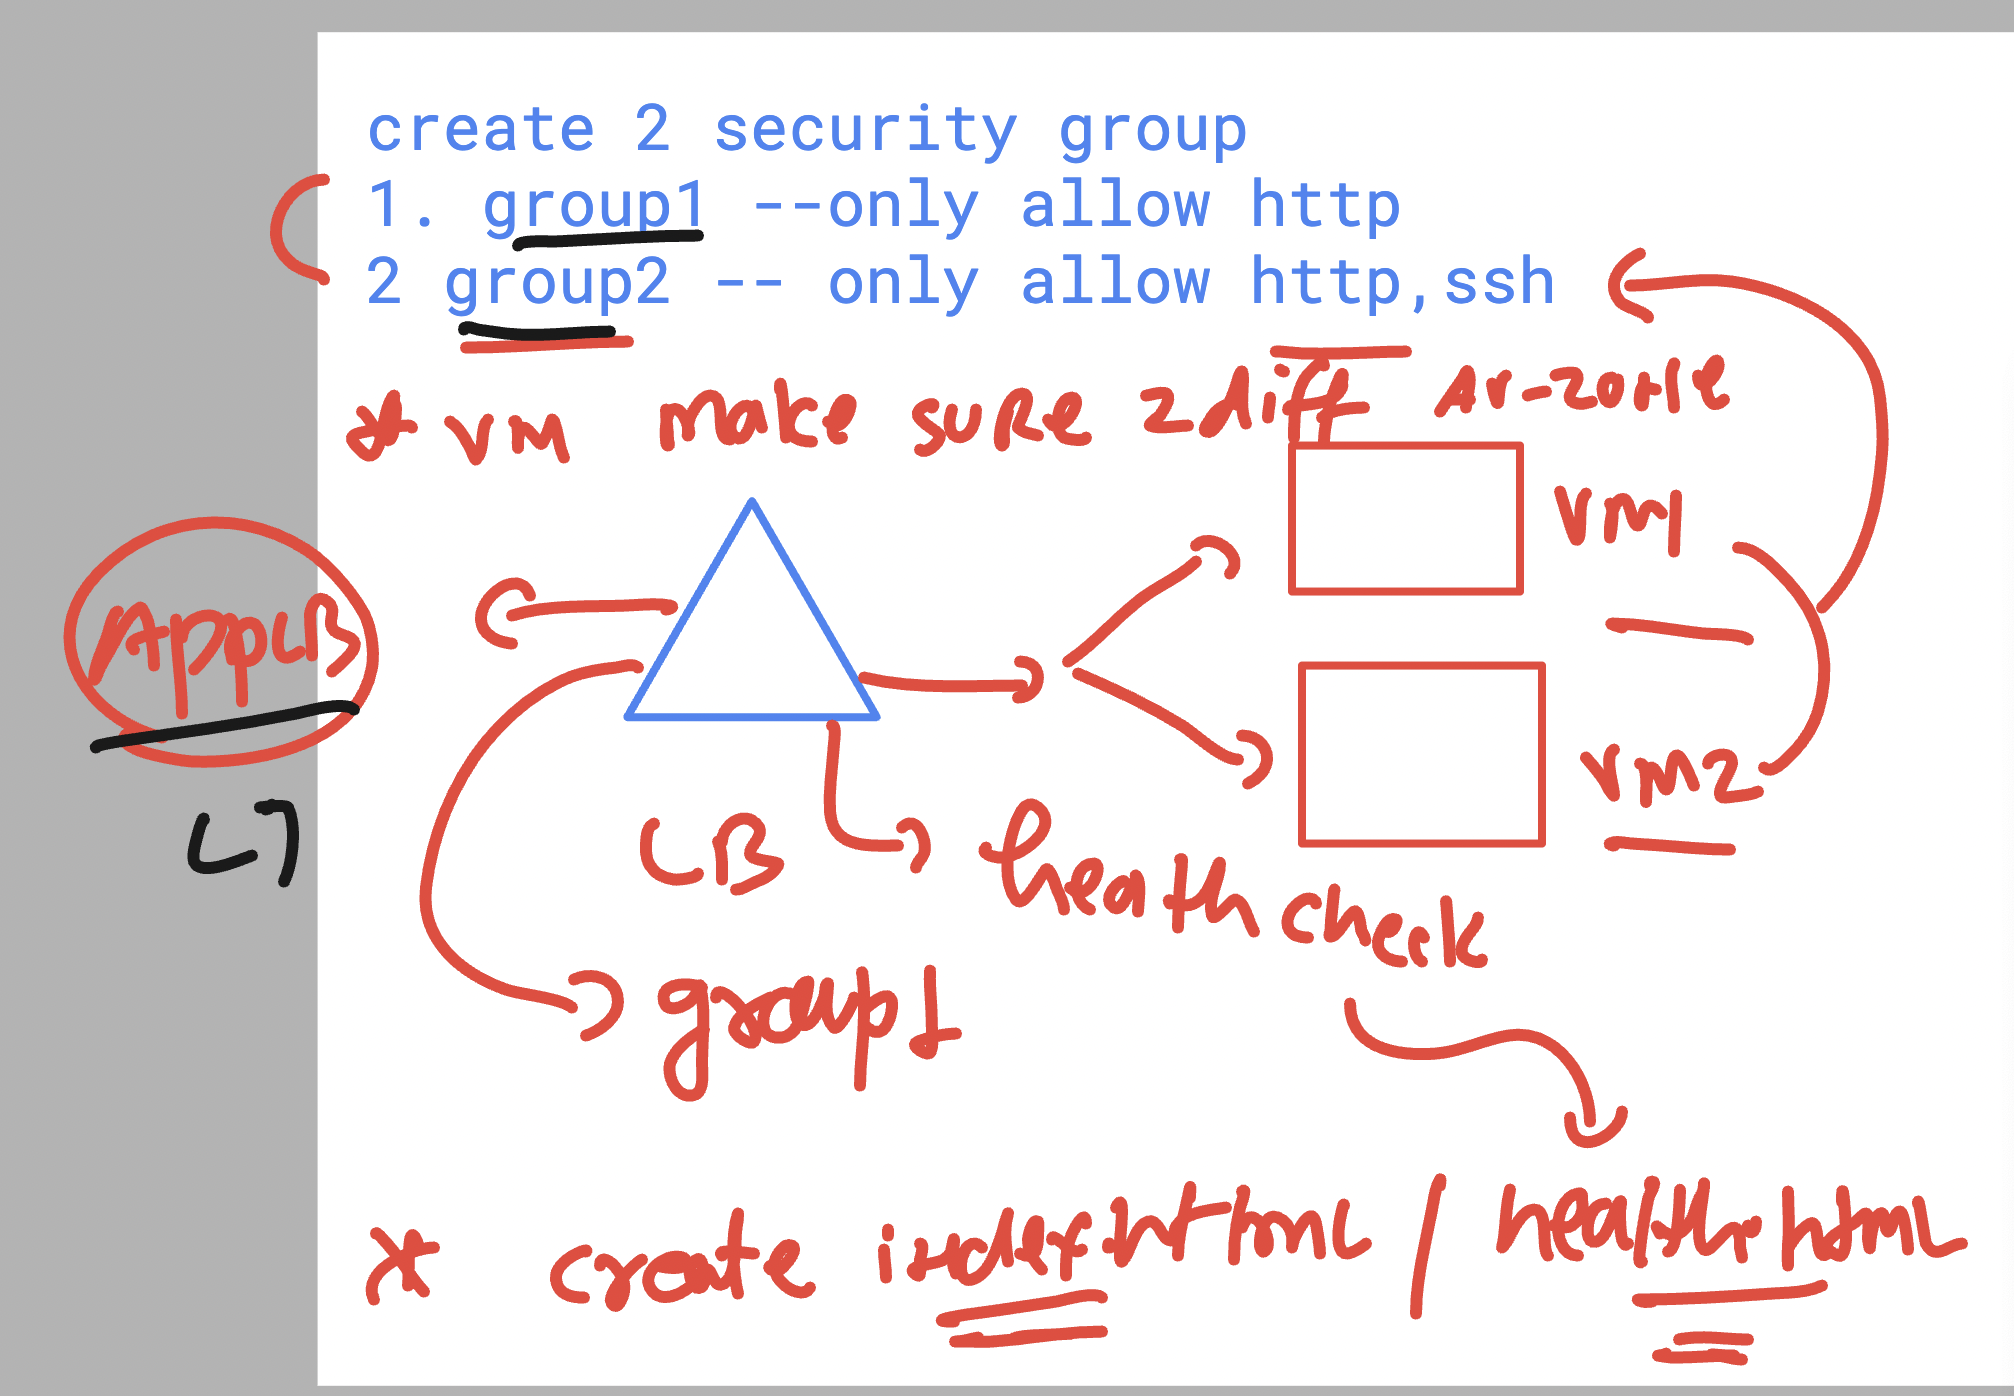 create 2 security group
1. group1 --only allow http
2 group2 -- only allow http,ssh
* VM make sure 2 diff Av-zone
VM1
AppLB
L7
VM2
LB
heath check
group 1
* create index.html / health.html